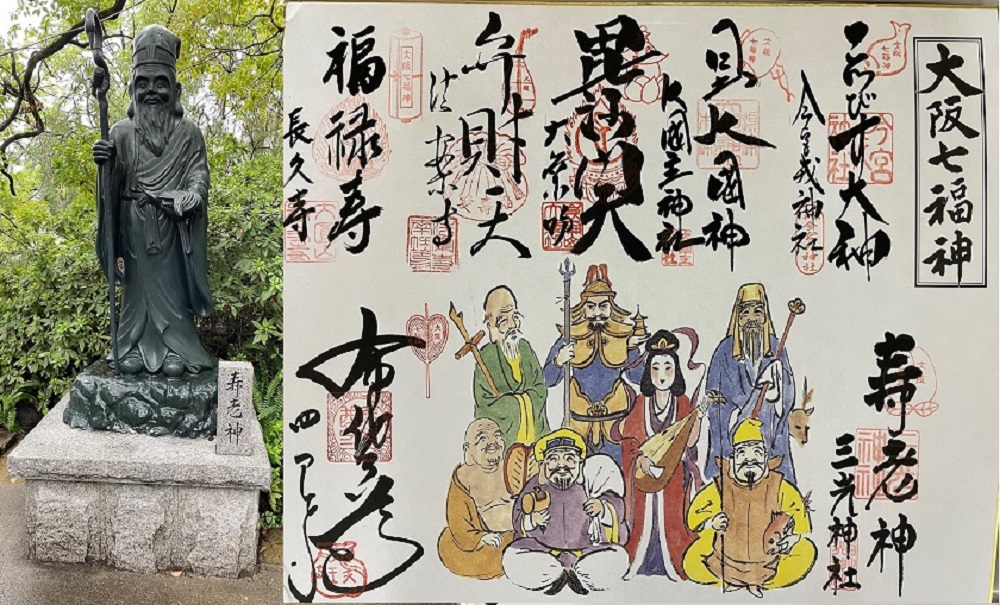 寿老神
大阪七福神
ゑびす大神
今宮戎神社
大国神
大国主神社
毘沙門天
大乗坊
弁財天
法案寺
福禄寿
長久寺
寿老神
三光神社
布袋尊
四天王寺